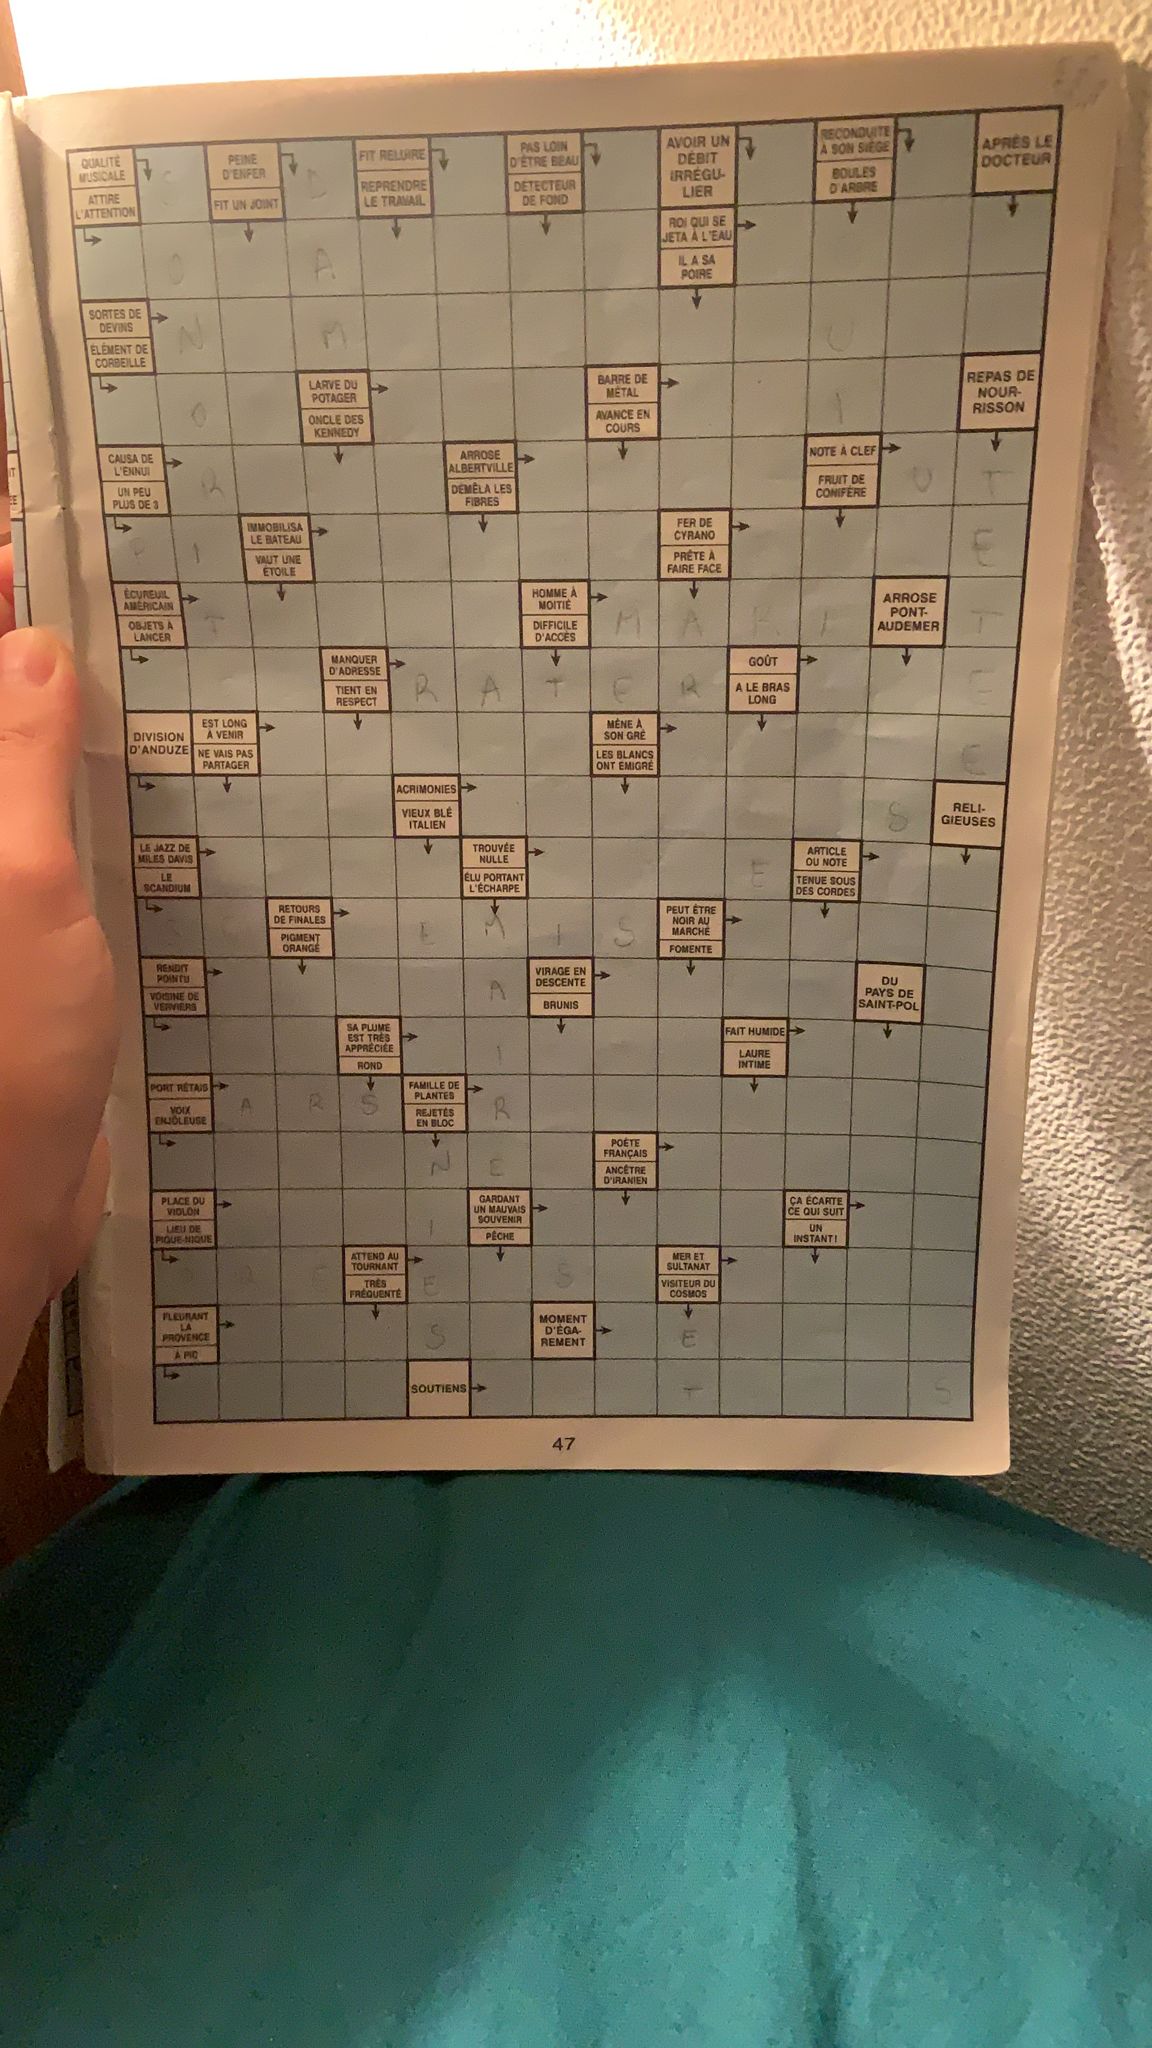 QUALITÉ
MUSICALE
ATTIRE
L'ATTENTION
S
PEINE
D'ENFER
FIT UN JOINT
D
FIT RELUIRE
REPRENDRE
LE TRAVAIL
PAS LOIN
D'ÊTRE BEAU
DÉTECTEUR
DE FOND
AVOIR UN
DÉBIT
IRRÉGU-
LIER
RECONDUITE
À SON SIÈGE
BOULES
D'ARBRE
APRÈS LE
DOCTEUR
O A
ROI QUI SE
JETA À L'EAU
IL A SA
POIRE
SORTES DE
DEVINS
ÉLÉMENT DE
CORBEILLE
N M U
O
LARVE DU
POTAGER
ONCLE DES
KENNEDY
BARRE DE
MÉTAL
AVANCE EN
COURS
I
REPAS DE
NOUR-
RISSON
CAUSA DE
L'ENNUI
UN PEU
PLUS DE 3
R
ARROSE
ALBERTVILLE
DÉMÊLA LES
FIBRES
NOTE À CLEF
FRUIT DE
CONIFÈRE
U T
P I
IMMOBILISA
LE BATEAU
VAUT UNE
ÉTOILE
FER DE
CYRANO
PRÊTE À
FAIRE FACE
E
ÉCUREUIL
AMÉRICAIN
OBJETS À
LANCER
T
HOMME À
MOITIÉ
DIFFICILE
D'ACCÈS
M A K I
ARROSE
PONT-
AUDEMER
T
MANQUER
D'ADRESSE
TIENT EN
RESPECT
R A T E R
GOÛT
A LE BRAS
LONG
E
DIVISION
D'ANDUZE
EST LONG
À VENIR
NE VAIS PAS
PARTAGER
MÈNE À
SON GRÉ
LES BLANCS
ONT ÉMIGRÉ
E
ACRIMONIES
VIEUX BLÉ
ITALIEN
S
RELI-
GIEUSES
LE JAZZ DE
MILES DAVIS
LE
SCANDIUM
TROUVÉE
NULLE
ÉLU PORTANT
L'ÉCHARPE
E
ARTICLE
OU NOTE
TENUE SOUS
DES CORDES
S C
RETOURS
DE FINALES
PIGMENT
ORANGÉ
E M I S
PEUT ÊTRE
NOIR AU
MARCHÉ
FOMENTE
RENDIT
POINTU
VOISINE DE
VERVIERS
A
VIRAGE EN
DESCENTE
BRUNIS
DU
PAYS DE
SAINT-POL
SA PLUME
EST TRÈS
APPRÉCIÉE
ROND
I
FAIT HUMIDE
LAURE
INTIME
PORT RÉTAIS
VOIX
ENJÔLEUSE
A R S
FAMILLE DE
PLANTES
REJETÉS
EN BLOC
R
N E
POÈTE
FRANÇAIS
ANCÊTRE
D'IRANIEN
PLACE DU
VIOLON
LIEU DE
PIQUE-NIQUE
I
GARDANT
UN MAUVAIS
SOUVENIR
PÊCHE
ÇA ÉCARTE
CE QUI SUIT
UN
INSTANT !
ATTEND AU
TOURNANT
TRÈS
FRÉQUENTÉ
E S
MER ET
SULTANAT
VISITEUR DU
COSMOS
FLEURANT
LA
PROVENCE
À PIC
S
MOMENT
D'ÉGA-
REMENT
E
SOUTIENS
T S
47